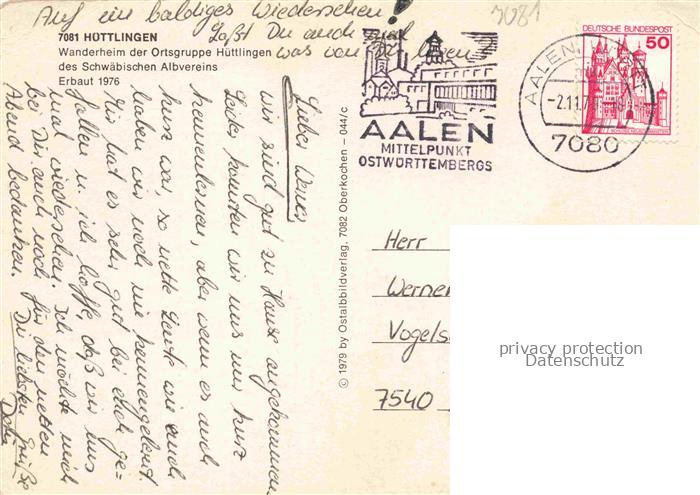 Auf ein baldiges Wiedersehen!
Läßt Du auch mal
was von Dir hören?
7081
7081 HÜTTLINGEN
Wanderheim der Ortsgruppe Hüttlingen
des Schwäbischen Albvereins
Erbaut 1976
Lieber Werner
wir sind gut zu Hause angekommen.
Leider konnten wir uns nur kurz
kennenlernen, aber wenn es auch
kurz war, so nette Leute wie euch
haben wir noch nie kennengelernt.
Mir hat es sehr gut bei euch ge-
fallen u. ich hoffe, daß wir uns
mal wiedersehen. Ich möchte mich
bei Dir auch noch für den netten
Abend bedanken. Die liebsten Grüße
© 1979 by Ostalbbildverlag, 7082 Oberkochen – 044/c
AALEN
MITTELPUNKT
OSTWÜRTTEMBERGS
AALEN
-2.11.7
7080
DEUTSCHE BUNDESPOST
50
Herr
Werner
Vogels
7540
privacy protection
Datenschutz